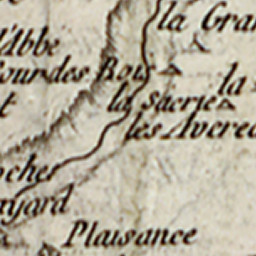 la Gra
l'Abbe
Cour des Bois
la
t
la Sacrie
les Avere
oches
ayard
Plaisance